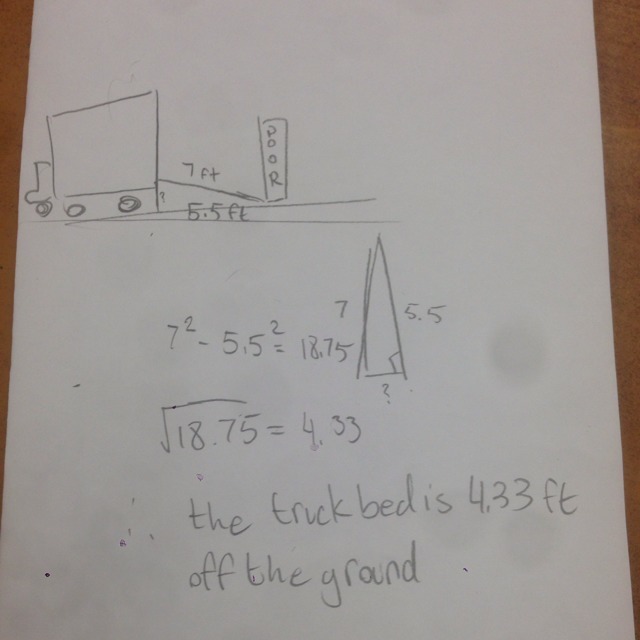 DOOR
7 ft
?
5.5 ft
7 5.5
7² - 5.5² = 18.75
?
√18.75 = 4.33
∴ the truck bed is 4.33 ft
off the ground